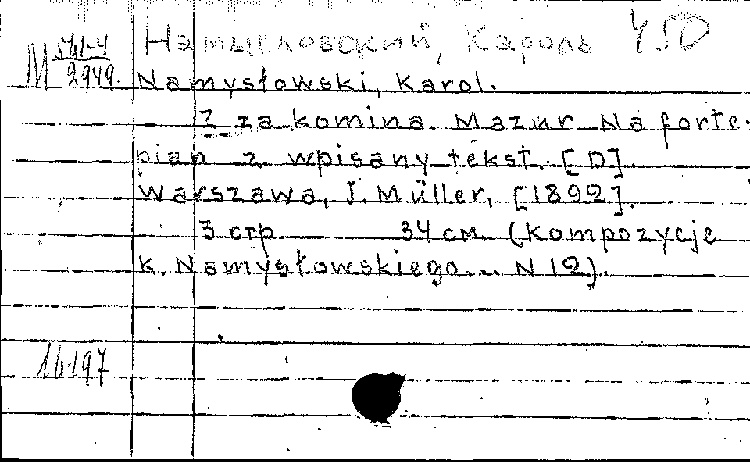 Намысловский, Кароль 450
М 541-4
2949.
Namysłowski, Karol.
Z za komina. Mazur na forte-
pian z wpisany tekst. [D].
Warszawa, J. Müller, [1892].
3 стр. 34 см. (Kompozycje
K. Namysłowskiego... N 12).
16197